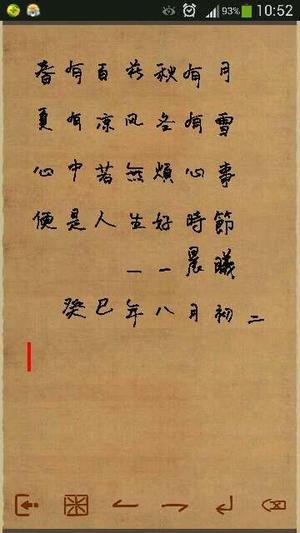 93% 10:52
春有百花秋有月
夏有凉风冬有雪
心中若無煩心事
便是人生好時節
——晨曦
癸巳年八月初二